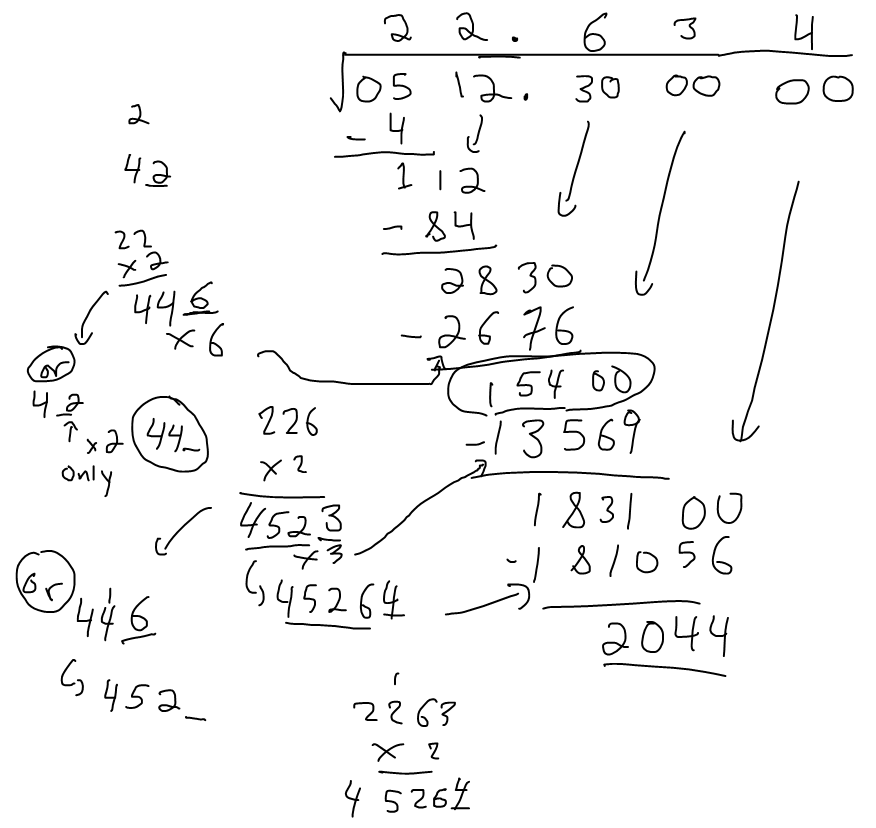 2 2. 6 3 4
√05 12. 30 00 00
- 4
1 12
- 84
2830
-2676
15400
-13569
1831 00
-181056
2044
2
42
22
x2
446
x6
or
42
x2
only
44_
226
x2
4523
x3
45264
or
1
446
452_
1
2263
x 2
45264